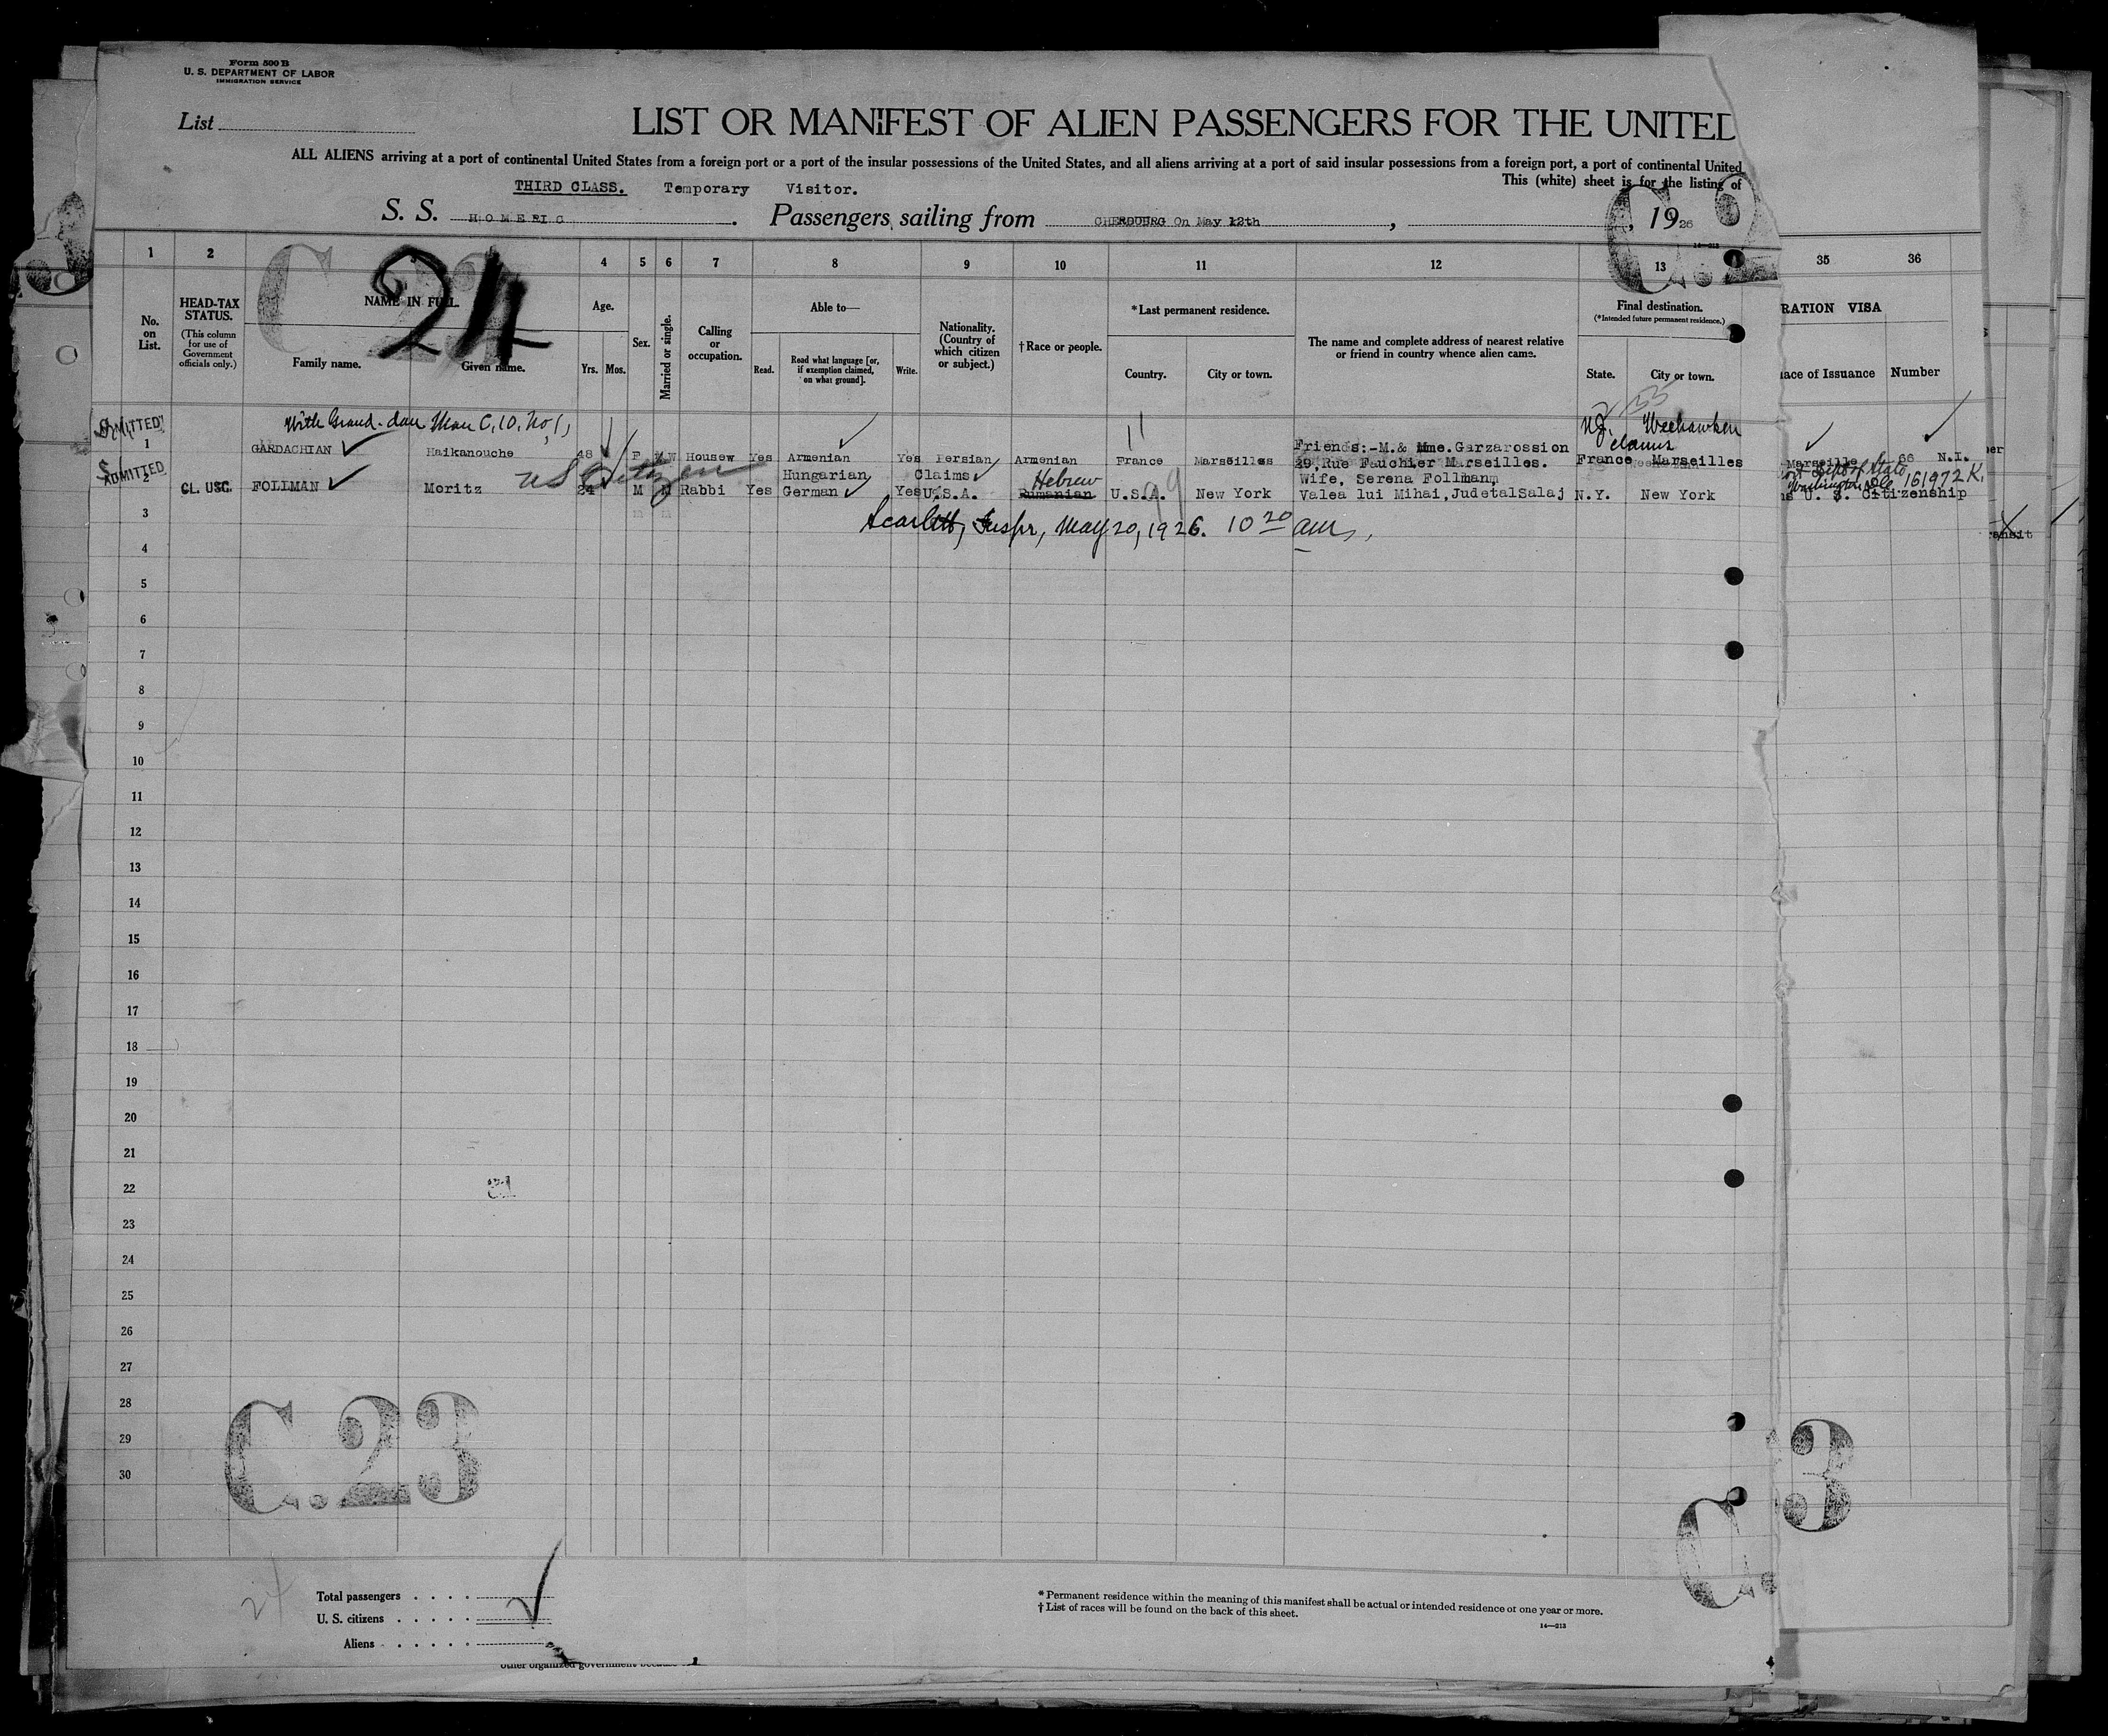 Form 500 B
U. S. DEPARTMENT OF LABOR
IMMIGRATION SERVICE
List
LIST OR MANIFEST OF ALIEN PASSENGERS FOR THE UNITED
ALL ALIENS arriving at a port of continental United States from a foreign port or a port of the insular possessions of the United States, and all aliens arriving at a port of said insular possessions from a foreign port, a port of continental United
This (white) sheet is for the listing of
THIRD CLASS. Temporary Visitor.
S. S. HOMERIC. Passengers sailing from CHERBOURG On May 12th, , 1926
14—213
C.
24
1 2 4 5 6 7 8 9 10 11 12 13 35 36
No. on List.
HEAD-TAX STATUS.
(This column for use of Government officials only.)
NAME IN FULL.
Family name. Given name.
Age.
Yrs. Mos.
Sex.
Married or single.
Calling or occupation.
Able to—
Read. Read what language [or, if exemption claimed, on what ground]. Write.
Nationality. (Country of which citizen or subject.)
†Race or people.
*Last permanent residence.
Country. City or town.
The name and complete address of nearest relative or friend in country whence alien came.
Final destination.
(*Intended future permanent residence.)
State. City or town.
RATION VISA
ace of Issuance Number
With Grand-dau Man C, 10, No, 1, NJ. Weehawken
ADMITTED
Friends:-M.& Mme.Garzarossion
1 GARDACHIAN Haikanouche 48 F W Housew Yes Armenian Yes Persian Armenian France Marseilles 29,Rue Fauchier Marseilles. France Marseilles Marseille 66 N.I.
US Citizen
ADMITTED
Hungarian Claims Hebrew Wife, Serena Follmann, Dept of State Washington 161972 K.
2 CL. USC. FOLLMAN Moritz 24 M M Rabbi Yes German Yes U.S.A. Rumanian U.S.A. New York Valea lui Mihai,JudetalSalaj N.Y. New York U. S. Citizenship
3 Scarlett, Inspr, May 20, 1926. 10 20 am,
4
5
6
7
8
9
10
11
12
13
14
15
16
17
18
19
20
21
22
23
24
25
26
27
28
29
30
C.23
3
C.
24
Total passengers
U. S. citizens
Aliens
* Permanent residence within the meaning of this manifest shall be actual or intended residence of one year or more.
† List of races will be found on the back of this sheet.
14—213
other organized government because